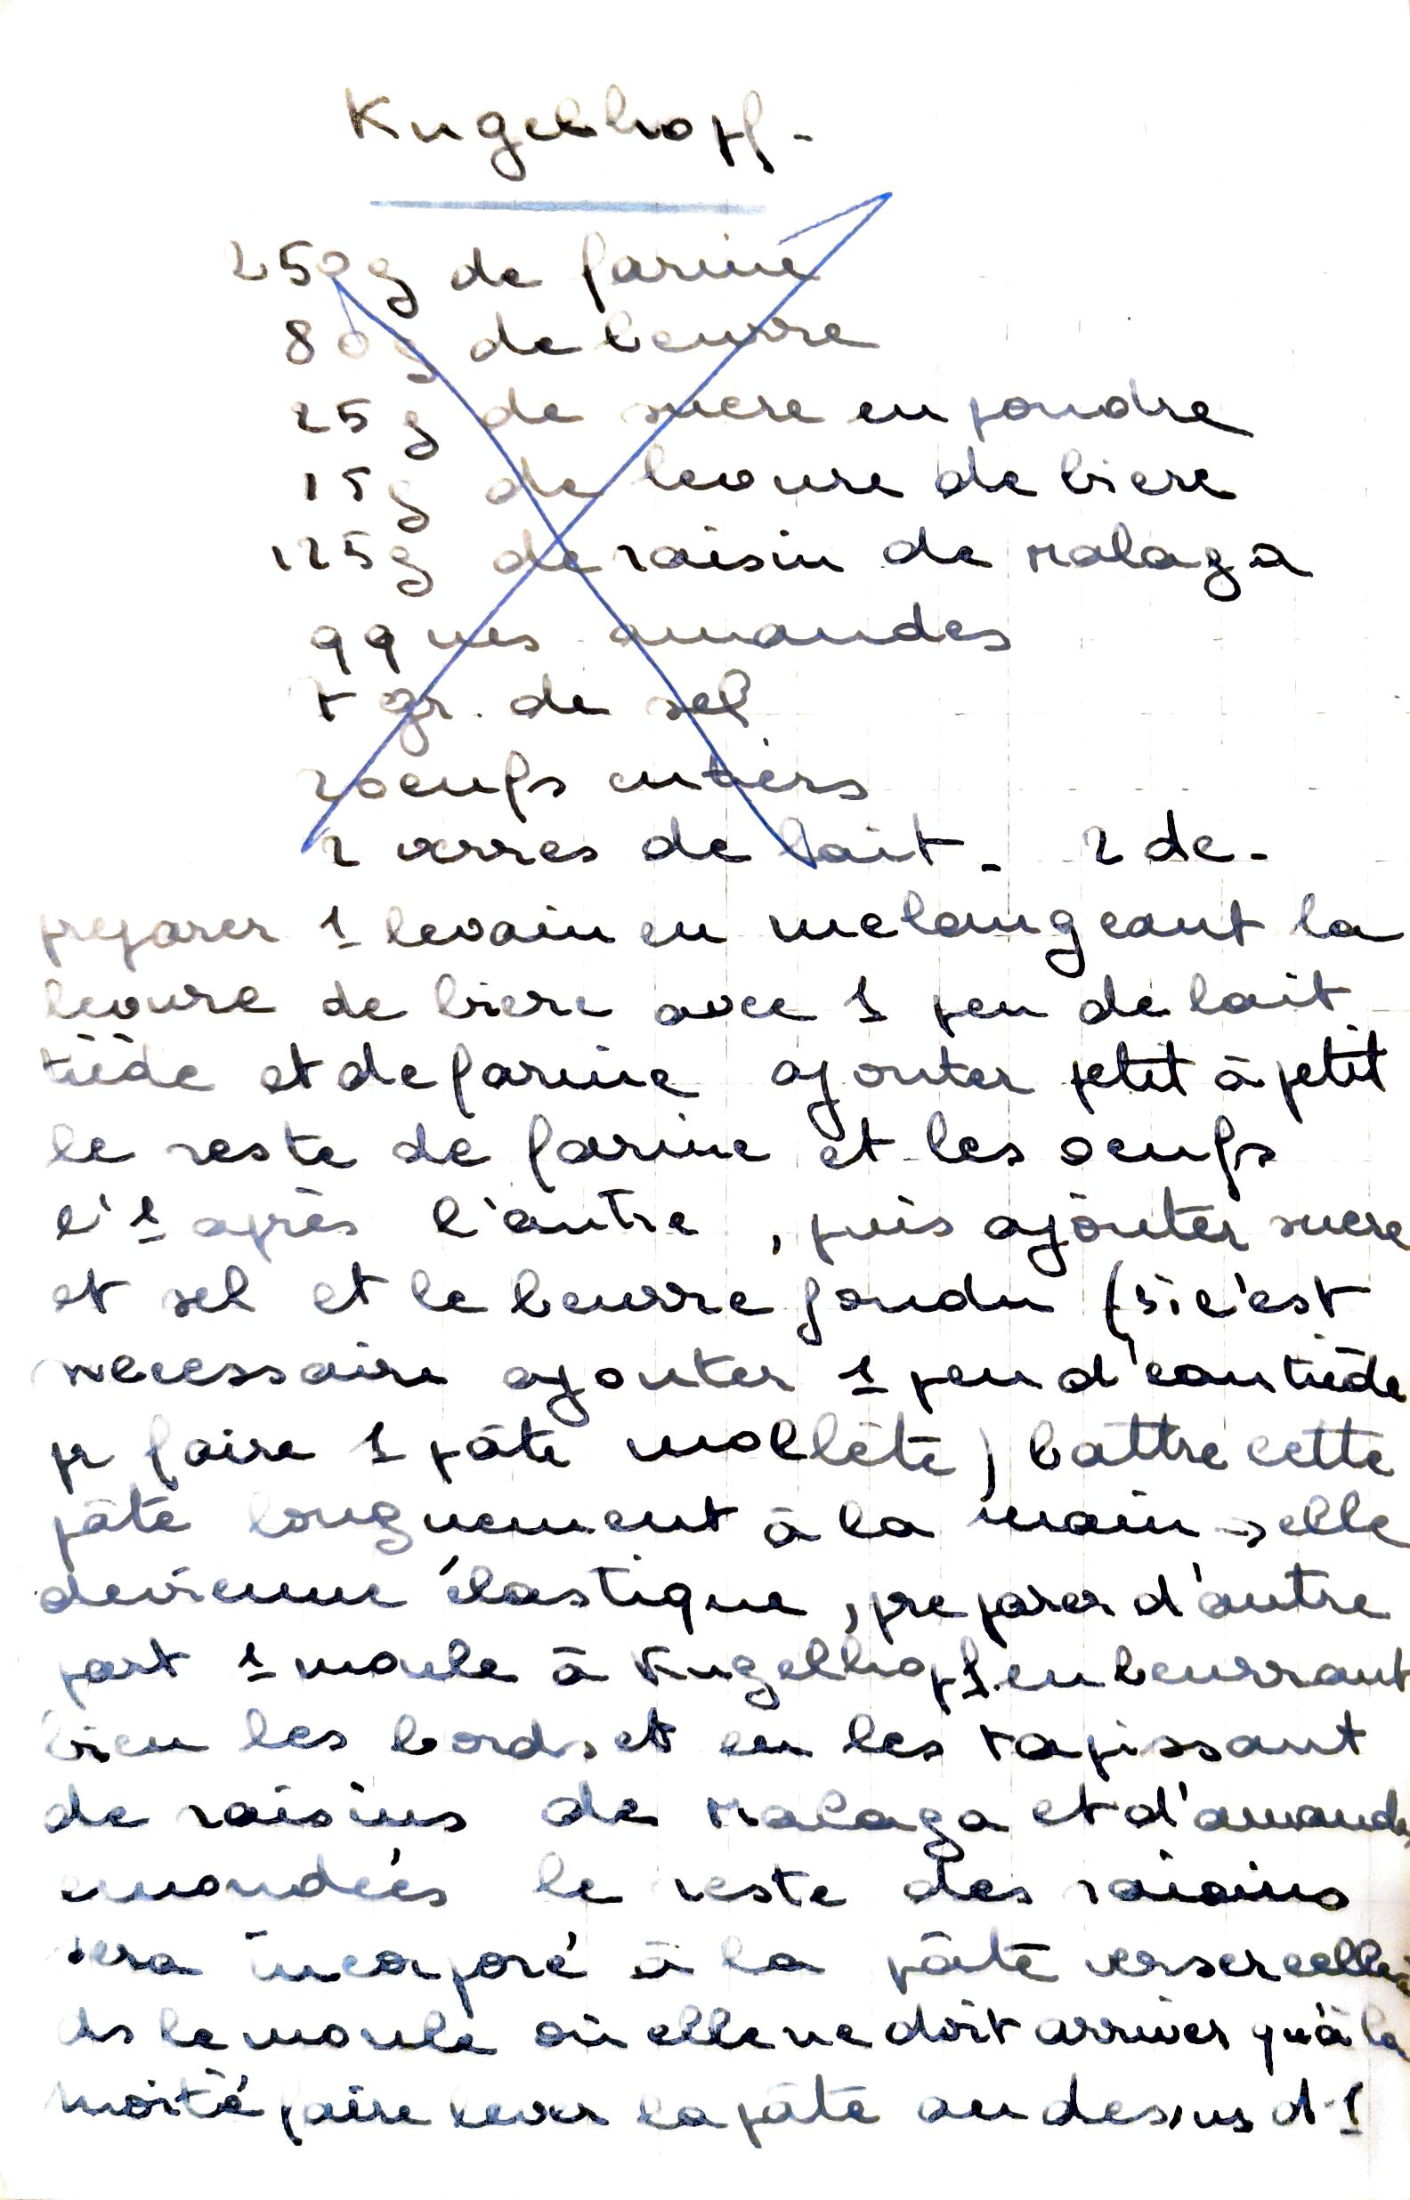 Kugelhopf -
250g de farine
80g de beurre
25g de sucre en poudre
15g de levure de biere
125g de raisin de Malaga
qques amandes
7 gr. de sel
2 oeufs entièrs
2 verres de lait - 2 de -
preparer 1 levain en melangeant la
levure de biere avec 1 peu de lait
tiède et de farine ajouter petit à petit
le reste de farine et les oeufs
l'1 après l'autre, puis ajouter sucre
et sel et le beurre fondu (si c'est
necessaire ajouter 1 peu d'eau tiède
pr faire 1 pâte mollète) battre cette
pâte longuement à la main → elle
devienne élastique, preparer d'autre
part 1 moule à Kugelhopf en beurrant
bien les bords et en les tapissant
de raisins de Malaga et d'amandes
emondées le reste des raisins
sera incorporé à la pâte verser celle-ci
ds le moule où elle ne doit arriver qu'à la
moitié faire lever la pâte au dessus d'1